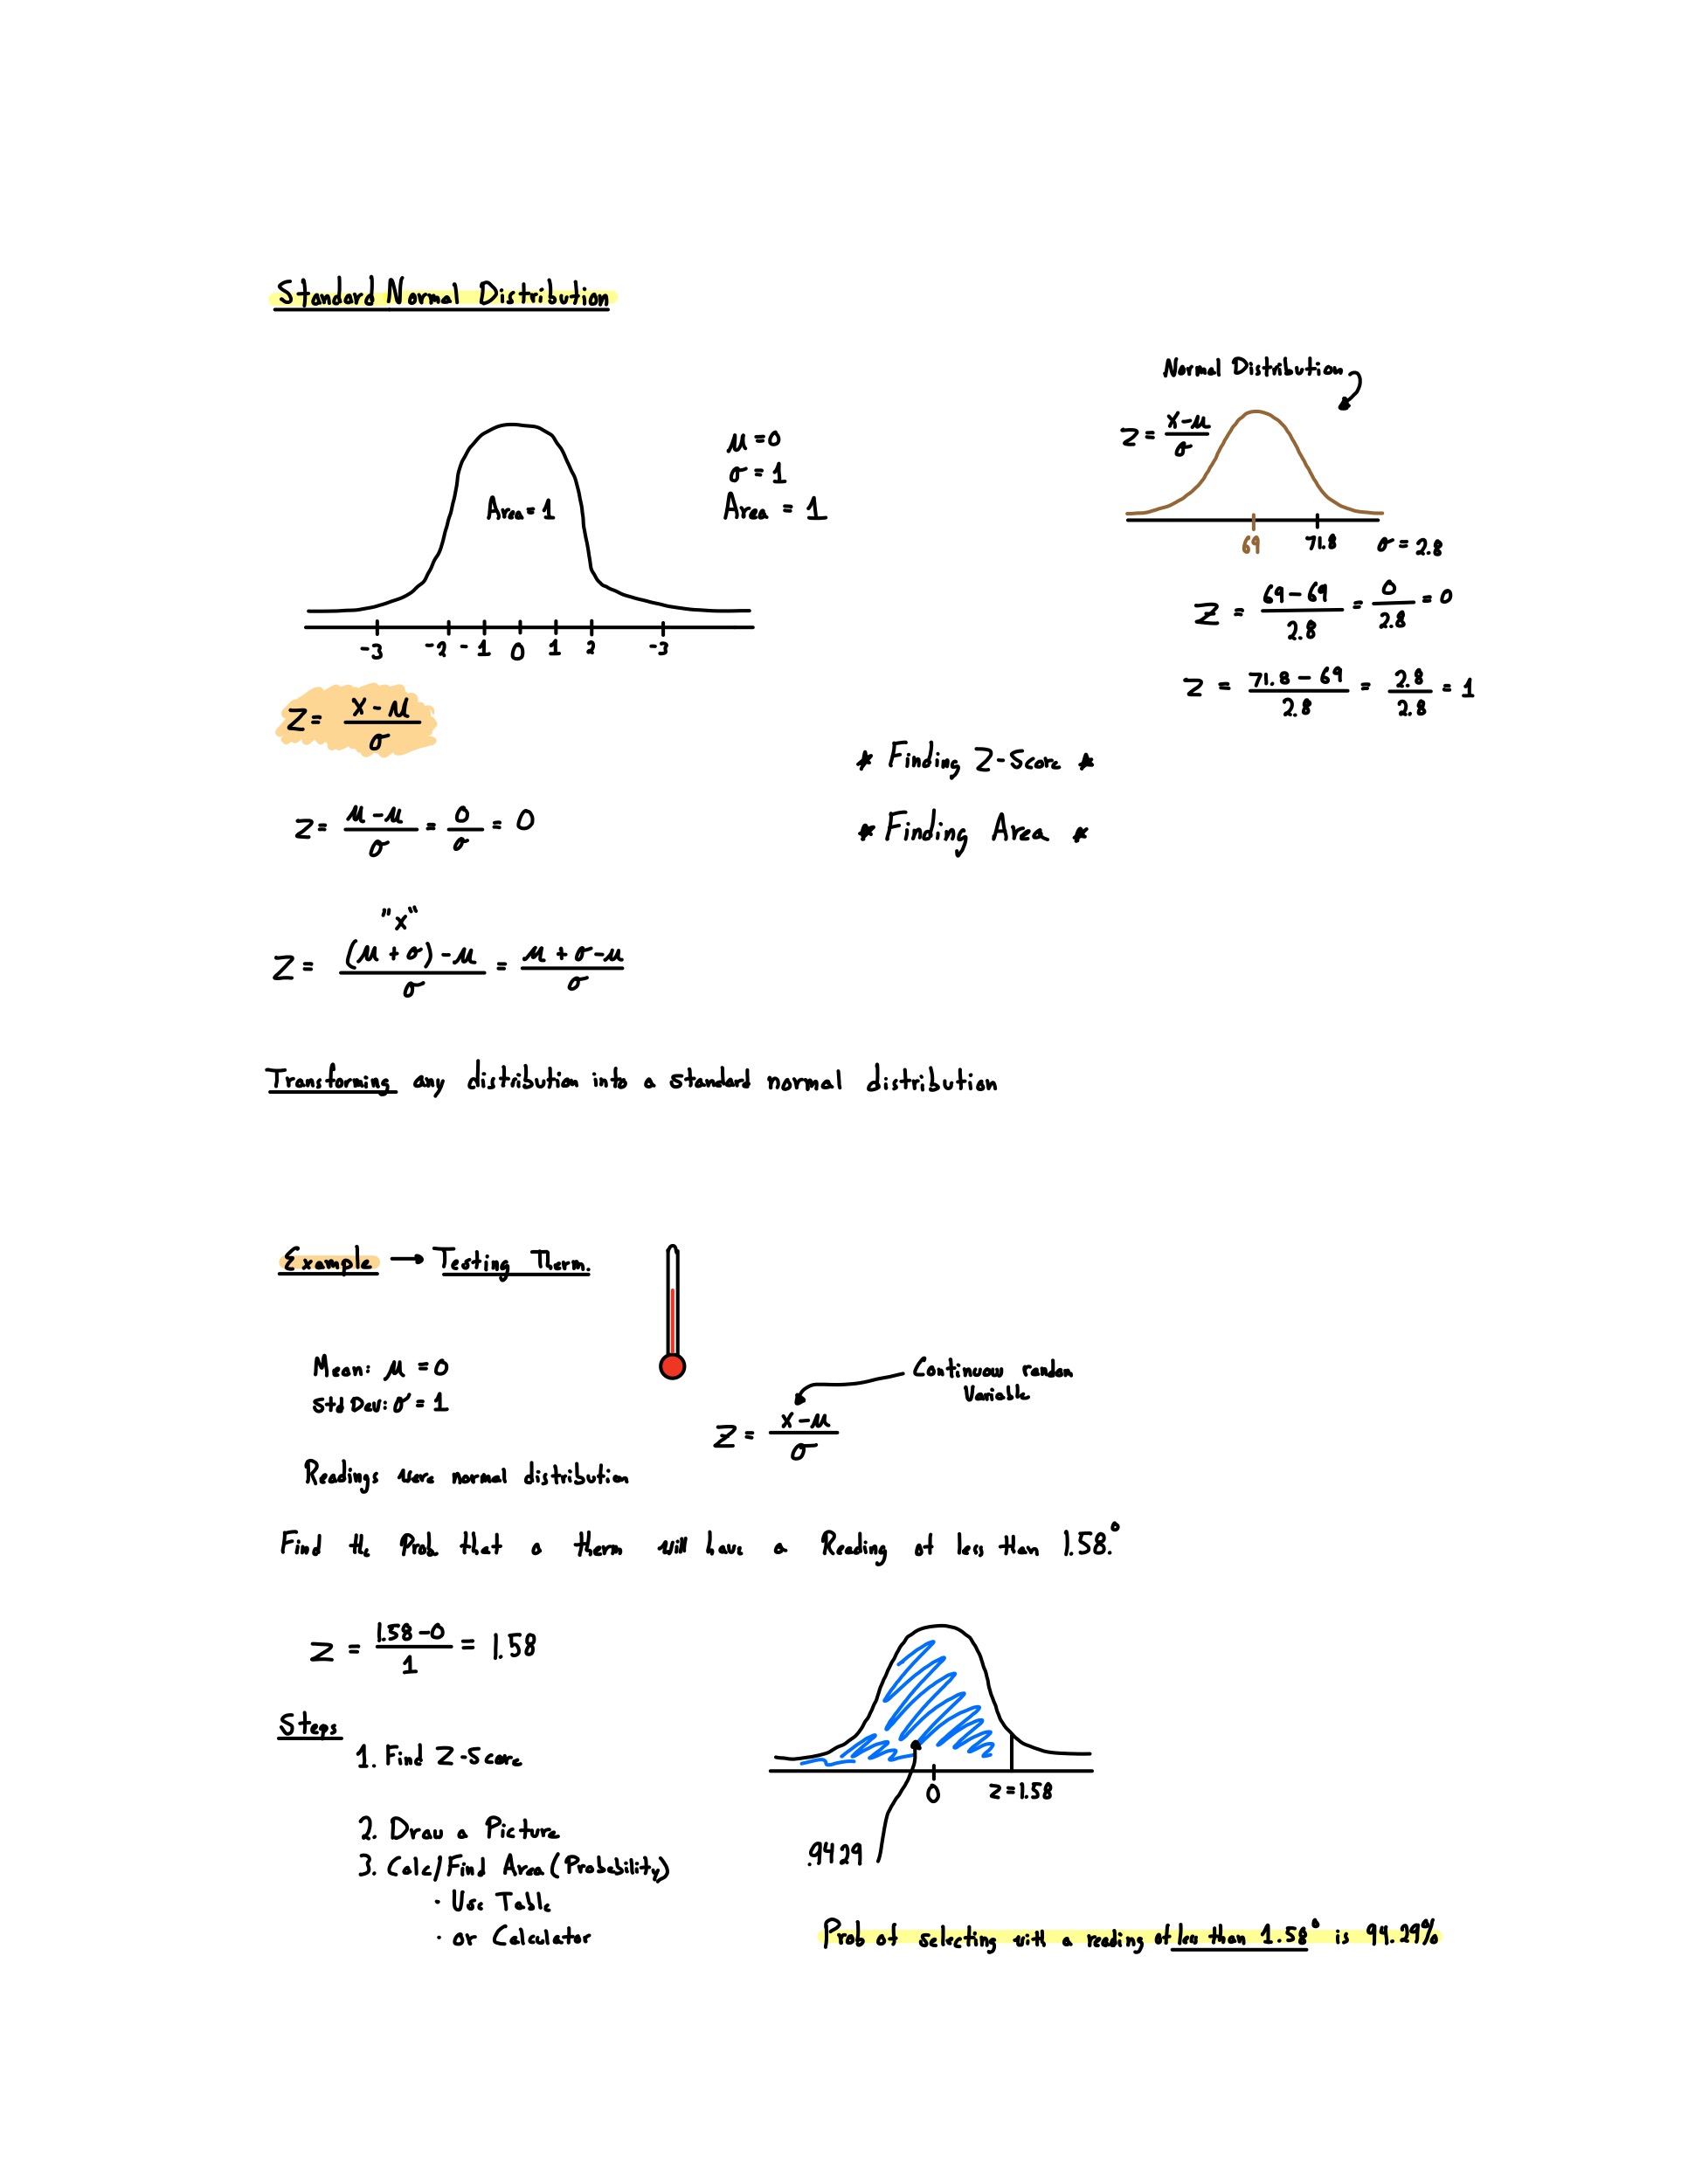 Standard Normal Distribution
Normal Distribution
Area = 1
μ = 0
σ = 1
Area = 1
z = x-μ / σ
69 71.8 σ = 2.8
-3 -2 -1 0 1 2 -3
z = 69-69 / 2.8 = 0 / 2.8 = 0
z = 71.8-69 / 2.8 = 2.8 / 2.8 = 1
z = x-μ / σ
* Finding Z-Score *
z = μ-μ / σ = 0 / σ = 0
* Finding Area *
"x"
z = (μ+σ)-μ / σ = μ+σ-μ / σ
Transforming any distribution into a standard normal distribution
Example → Testing Therm.
Mean: μ = 0
Std Dev: σ = 1
Continuous randon
Variable
z = x-μ / σ
Readings were normal distribution
Find the Prob that a therm will have a Reading of less than 1.58.°
z = 1.58-0 / 1 = 1.58
Steps
1. Find Z-Score
0 z=1.58
2. Draw a Picture
3. Calc/Find Area (Probability)
.9429
· Use Table
· or Calculator
Prob of selecting with a reading of less than 1.58° is 94.29%